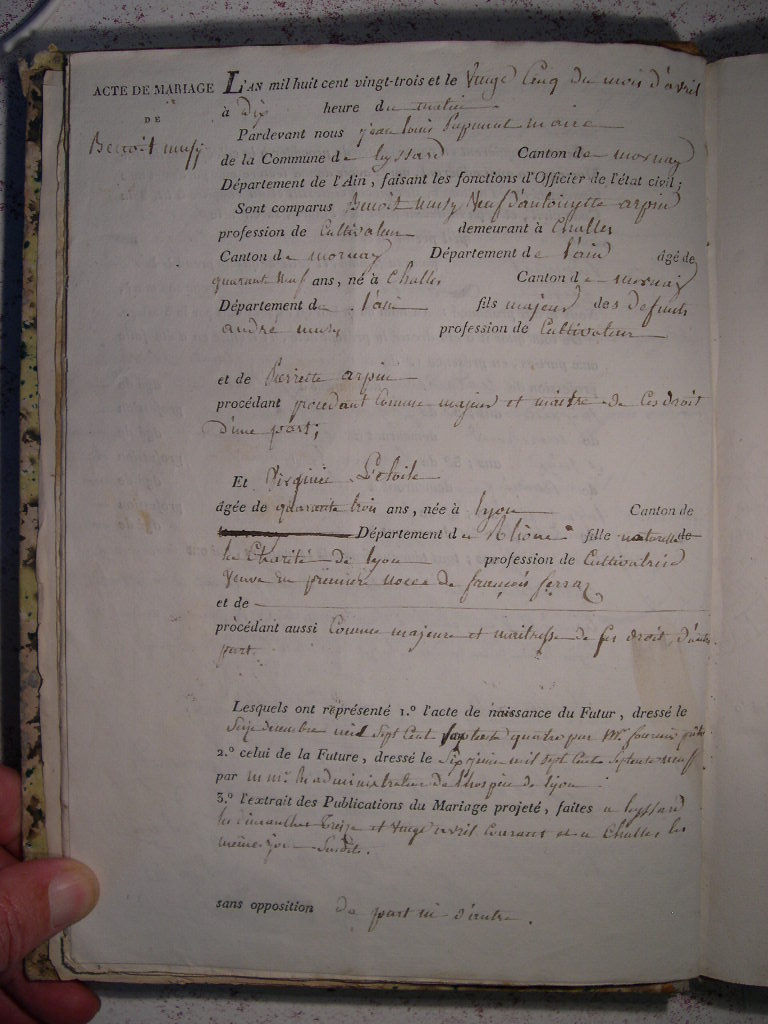 ACTE DE MARIAGE
DE
Benoit musy
L'AN mil huit cent vingt-trois et le Vingt Cinq du mois d'avril
à Dix heure du matin
Pardevant nous jean louis maire
de la Commune de leyssard Canton de mornay
Département de l'Ain, faisant les fonctions d'Officier de l'état civil;
Sont comparus Benoit musy Veuf d'antoinette arpin
profession de Cultivateur demeurant à Challes
Canton de mornay Département de l'ain âgé de
quarant neuf ans, né à Challes Canton de mornay
Département de l'ain fils majeur des defunts
andré musy profession de Cultivateur
et de Pierrette arpin
procédant procedant Comme majeur et maitre de Ces droit
d'une part;
Et Virginie L'Etoile
âgée de quarante trois ans, née à lyon Canton de
Département du Rhône fille naturelle de
la Charité de lyon profession de Cultivatrice
Veuve en premiere noces de françois ferraz
et de
procédant aussi Comme majeure et maitresse de ses droit, d'autre
part.
Lesquels ont représenté 1.º l'acte de naissance du Futur, dressé le
Seize decembre mil Sept Cent Septente quatre par Mr.
2.º celui de la Future, dressé le Six mil Sept Cent Septente neuf
par administration de l'hospice de lyon
3.º l'extrait des Publications du Mariage projeté, faites a leyssard
les dimanches Treize et Vingt avril Courant et a Challes les
même jour Susdit.
sans opposition de part ni d'autre.